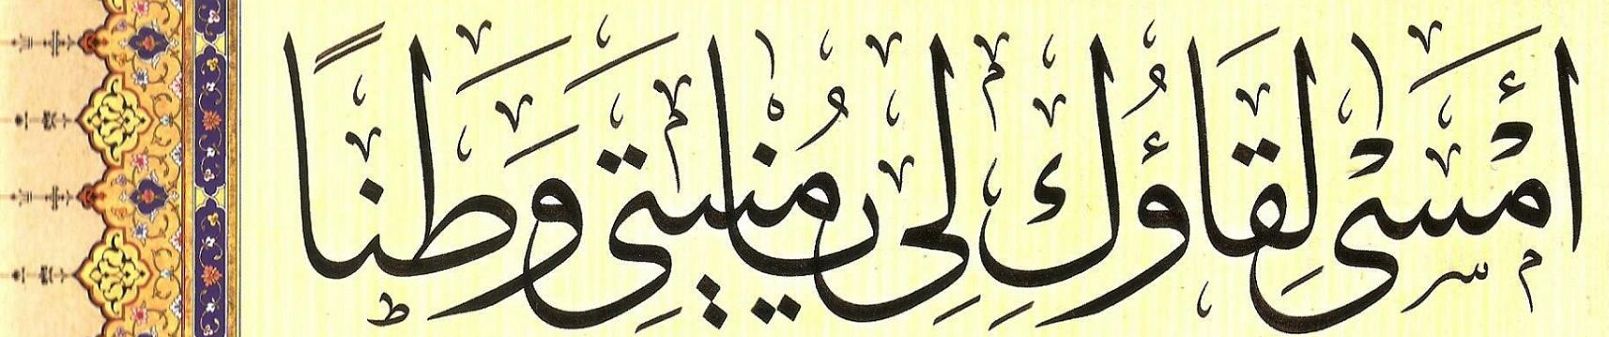 أَمْسَىٰ لِقَاؤُكَ لِى يَا مُنْيَتِى وَطَنًا